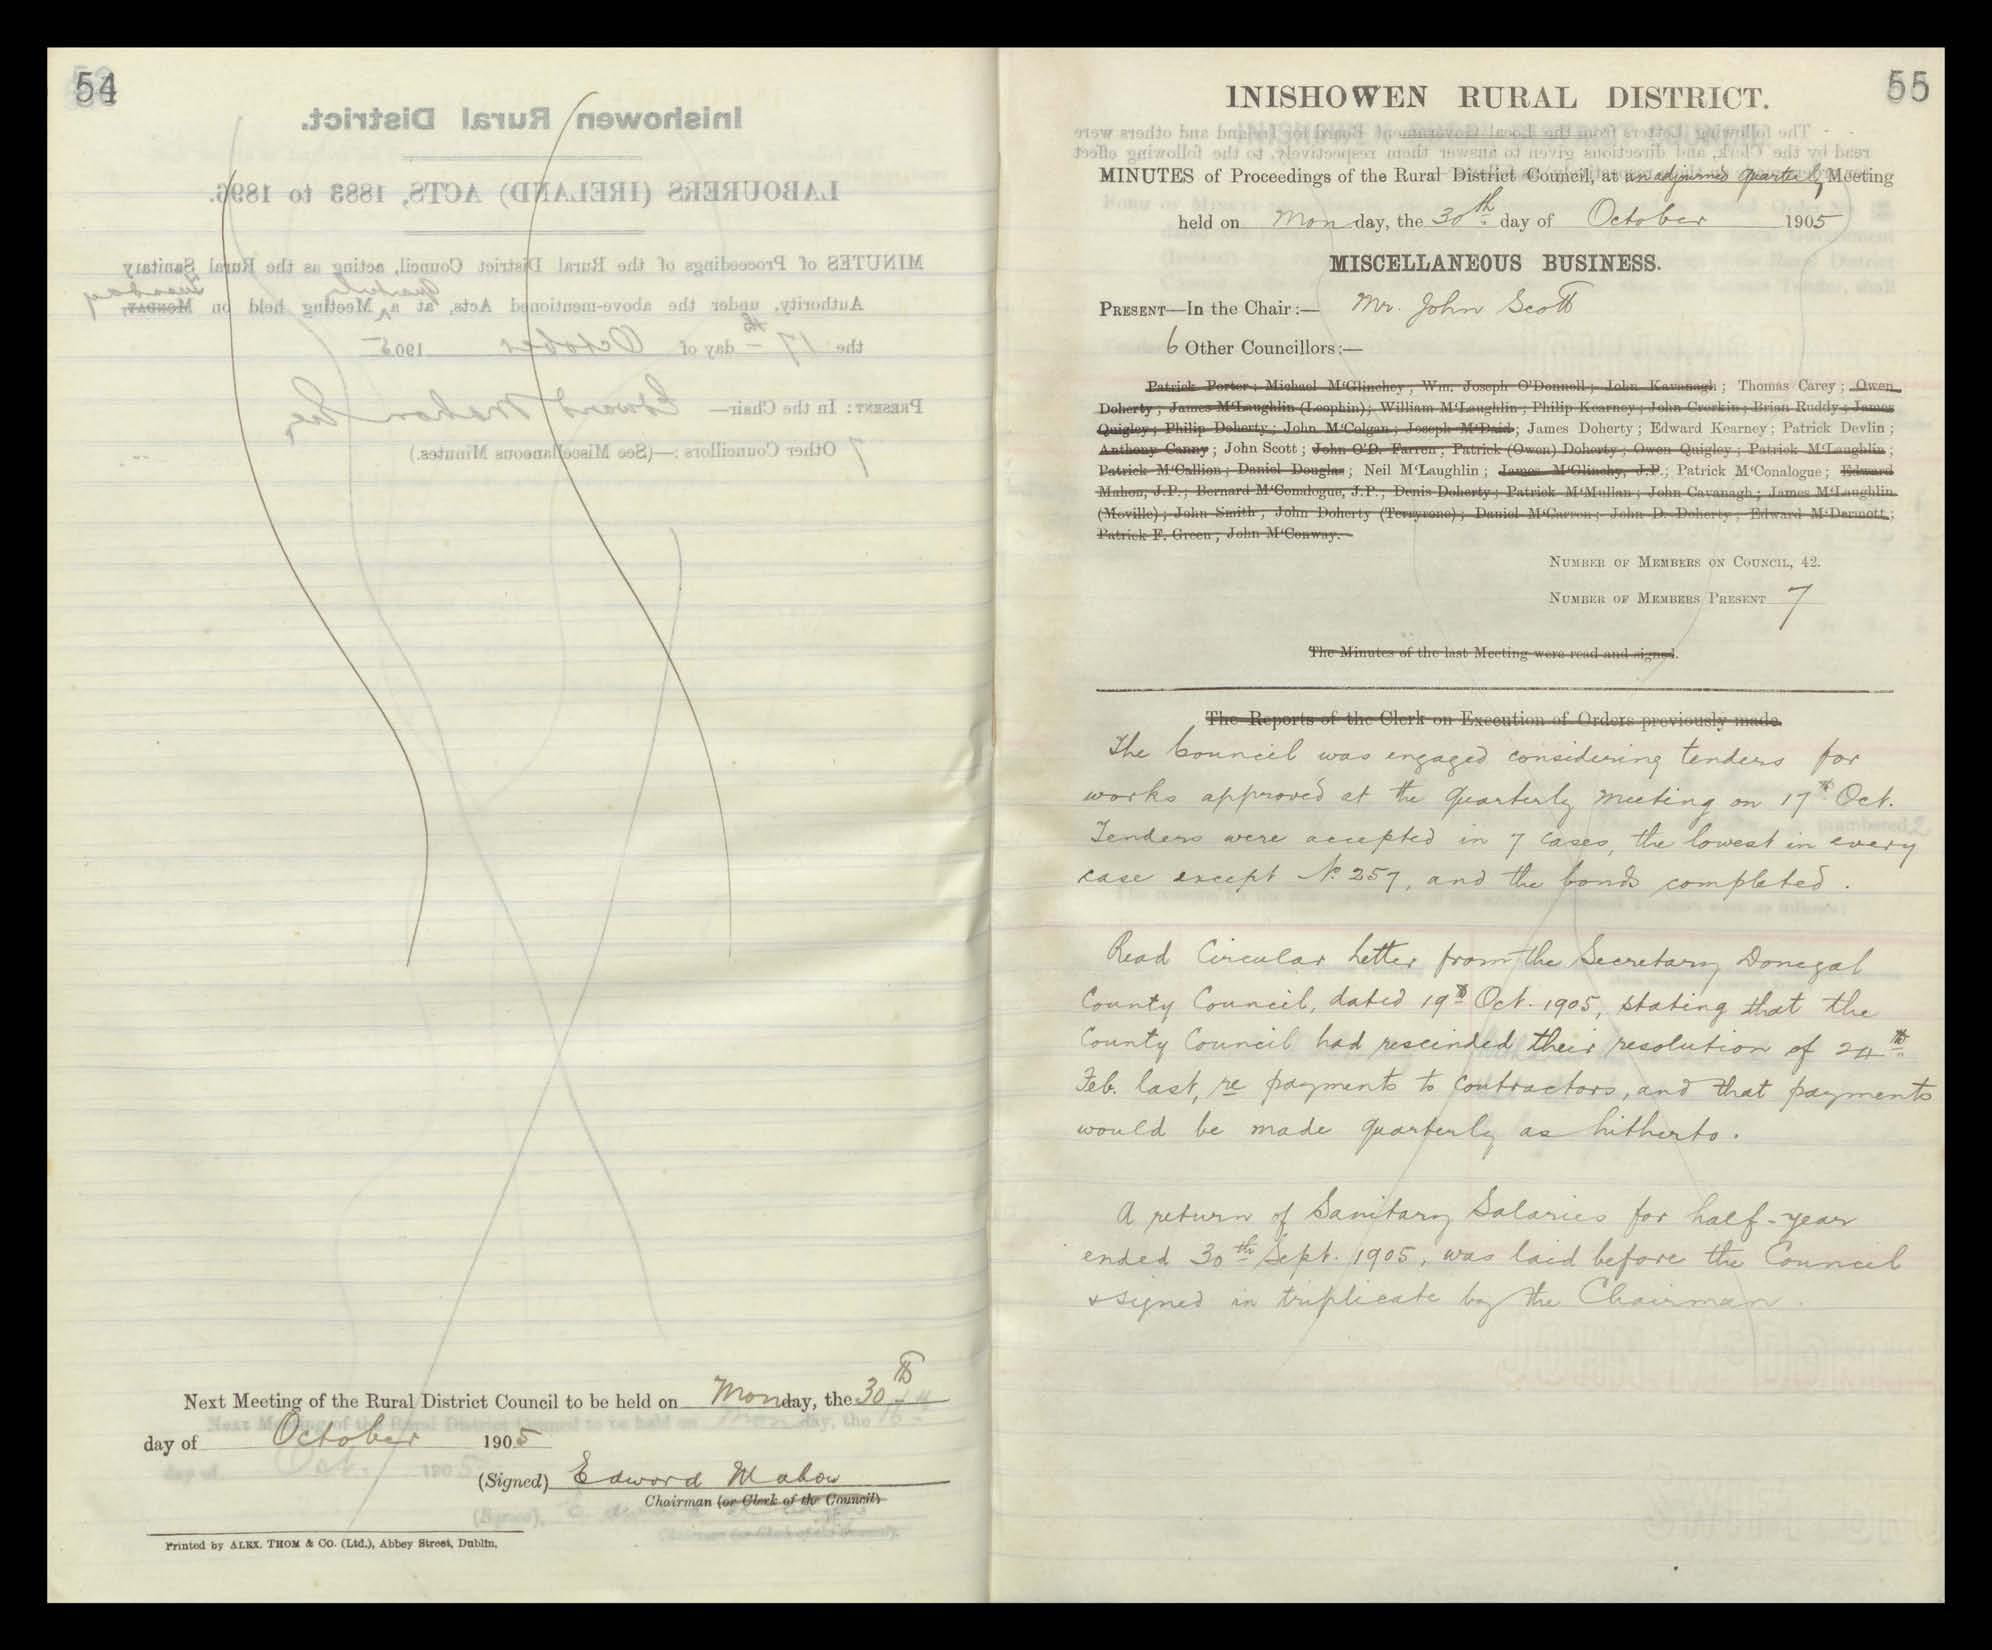 54
Next Meeting of the Rural District Council to be held on Monday, the 30th
day of October 1905
(Signed) Edward Mahon
Chairman (or Clerk of the Council)
Printed by ALEX. THOM & CO. (Ltd.), Abbey Street, Dublin.
55
INISHOWEN RURAL DISTRICT.
MINUTES of Proceedings of the Rural District Council, at an adjourned quarterly Meeting
held on Monday, the 30th day of October 1905
MISCELLANEOUS BUSINESS.
PRESENT—In the Chair:— Mr. John Scott
6 Other Councillors:—
Patrick Porter; Michael M'Glinchey; Wm. Joseph O'Donnell; John Kavanagh; Thomas Carey; Owen
Doherty; James M'Laughlin (Leophin); William M'Laughlin; Philip Kearney; John Crerkin; Brian Ruddy; James
Quigley; Philip Doherty; John M'Colgan; Joseph M'Daid; James Doherty; Edward Kearney; Patrick Devlin;
Anthony Canny; John Scott; John O'D. Farren; Patrick (Owen) Doherty; Owen Quigley; Patrick M'Laughlin;
Patrick M'Callion; Daniel Douglas; Neil M'Laughlin; James M'Glinchy, J.P.; Patrick M'Conalogue; Edward
Mahon, J.P.; Bernard M'Conalogue, J.P.; Denis Doherty; Patrick M'Mullan; John Cavanagh; James M'Laughlin
(Moville); John Smith; John Doherty (Terryrone); Daniel M'Carron; John D. Doherty; Edward M'Dermott;
Patrick F. Green; John M'Conway.
NUMBER OF MEMBERS ON COUNCIL, 42.
NUMBER OF MEMBERS PRESENT 7
The Minutes of the last Meeting were read and signed.
The Reports of the Clerk on Execution of Orders previously made.
The Council was engaged considering tenders for
works approved at the quarterly meeting on 17th Oct.
Tenders were accepted in 7 cases, the lowest in every
case except No. 257, and the bonds completed.
Read Circular letter from the Secretary Donegal
County Council, dated 19th Oct. 1905, stating that the
County Council had rescinded their resolution of 24th
Feb. last, re payments to contractors, and that payments
would be made quarterly as hitherto.
A return of Sanitary Salaries for half-year
ended 30th Sept. 1905, was laid before the Council
& signed in triplicate by the Chairman.